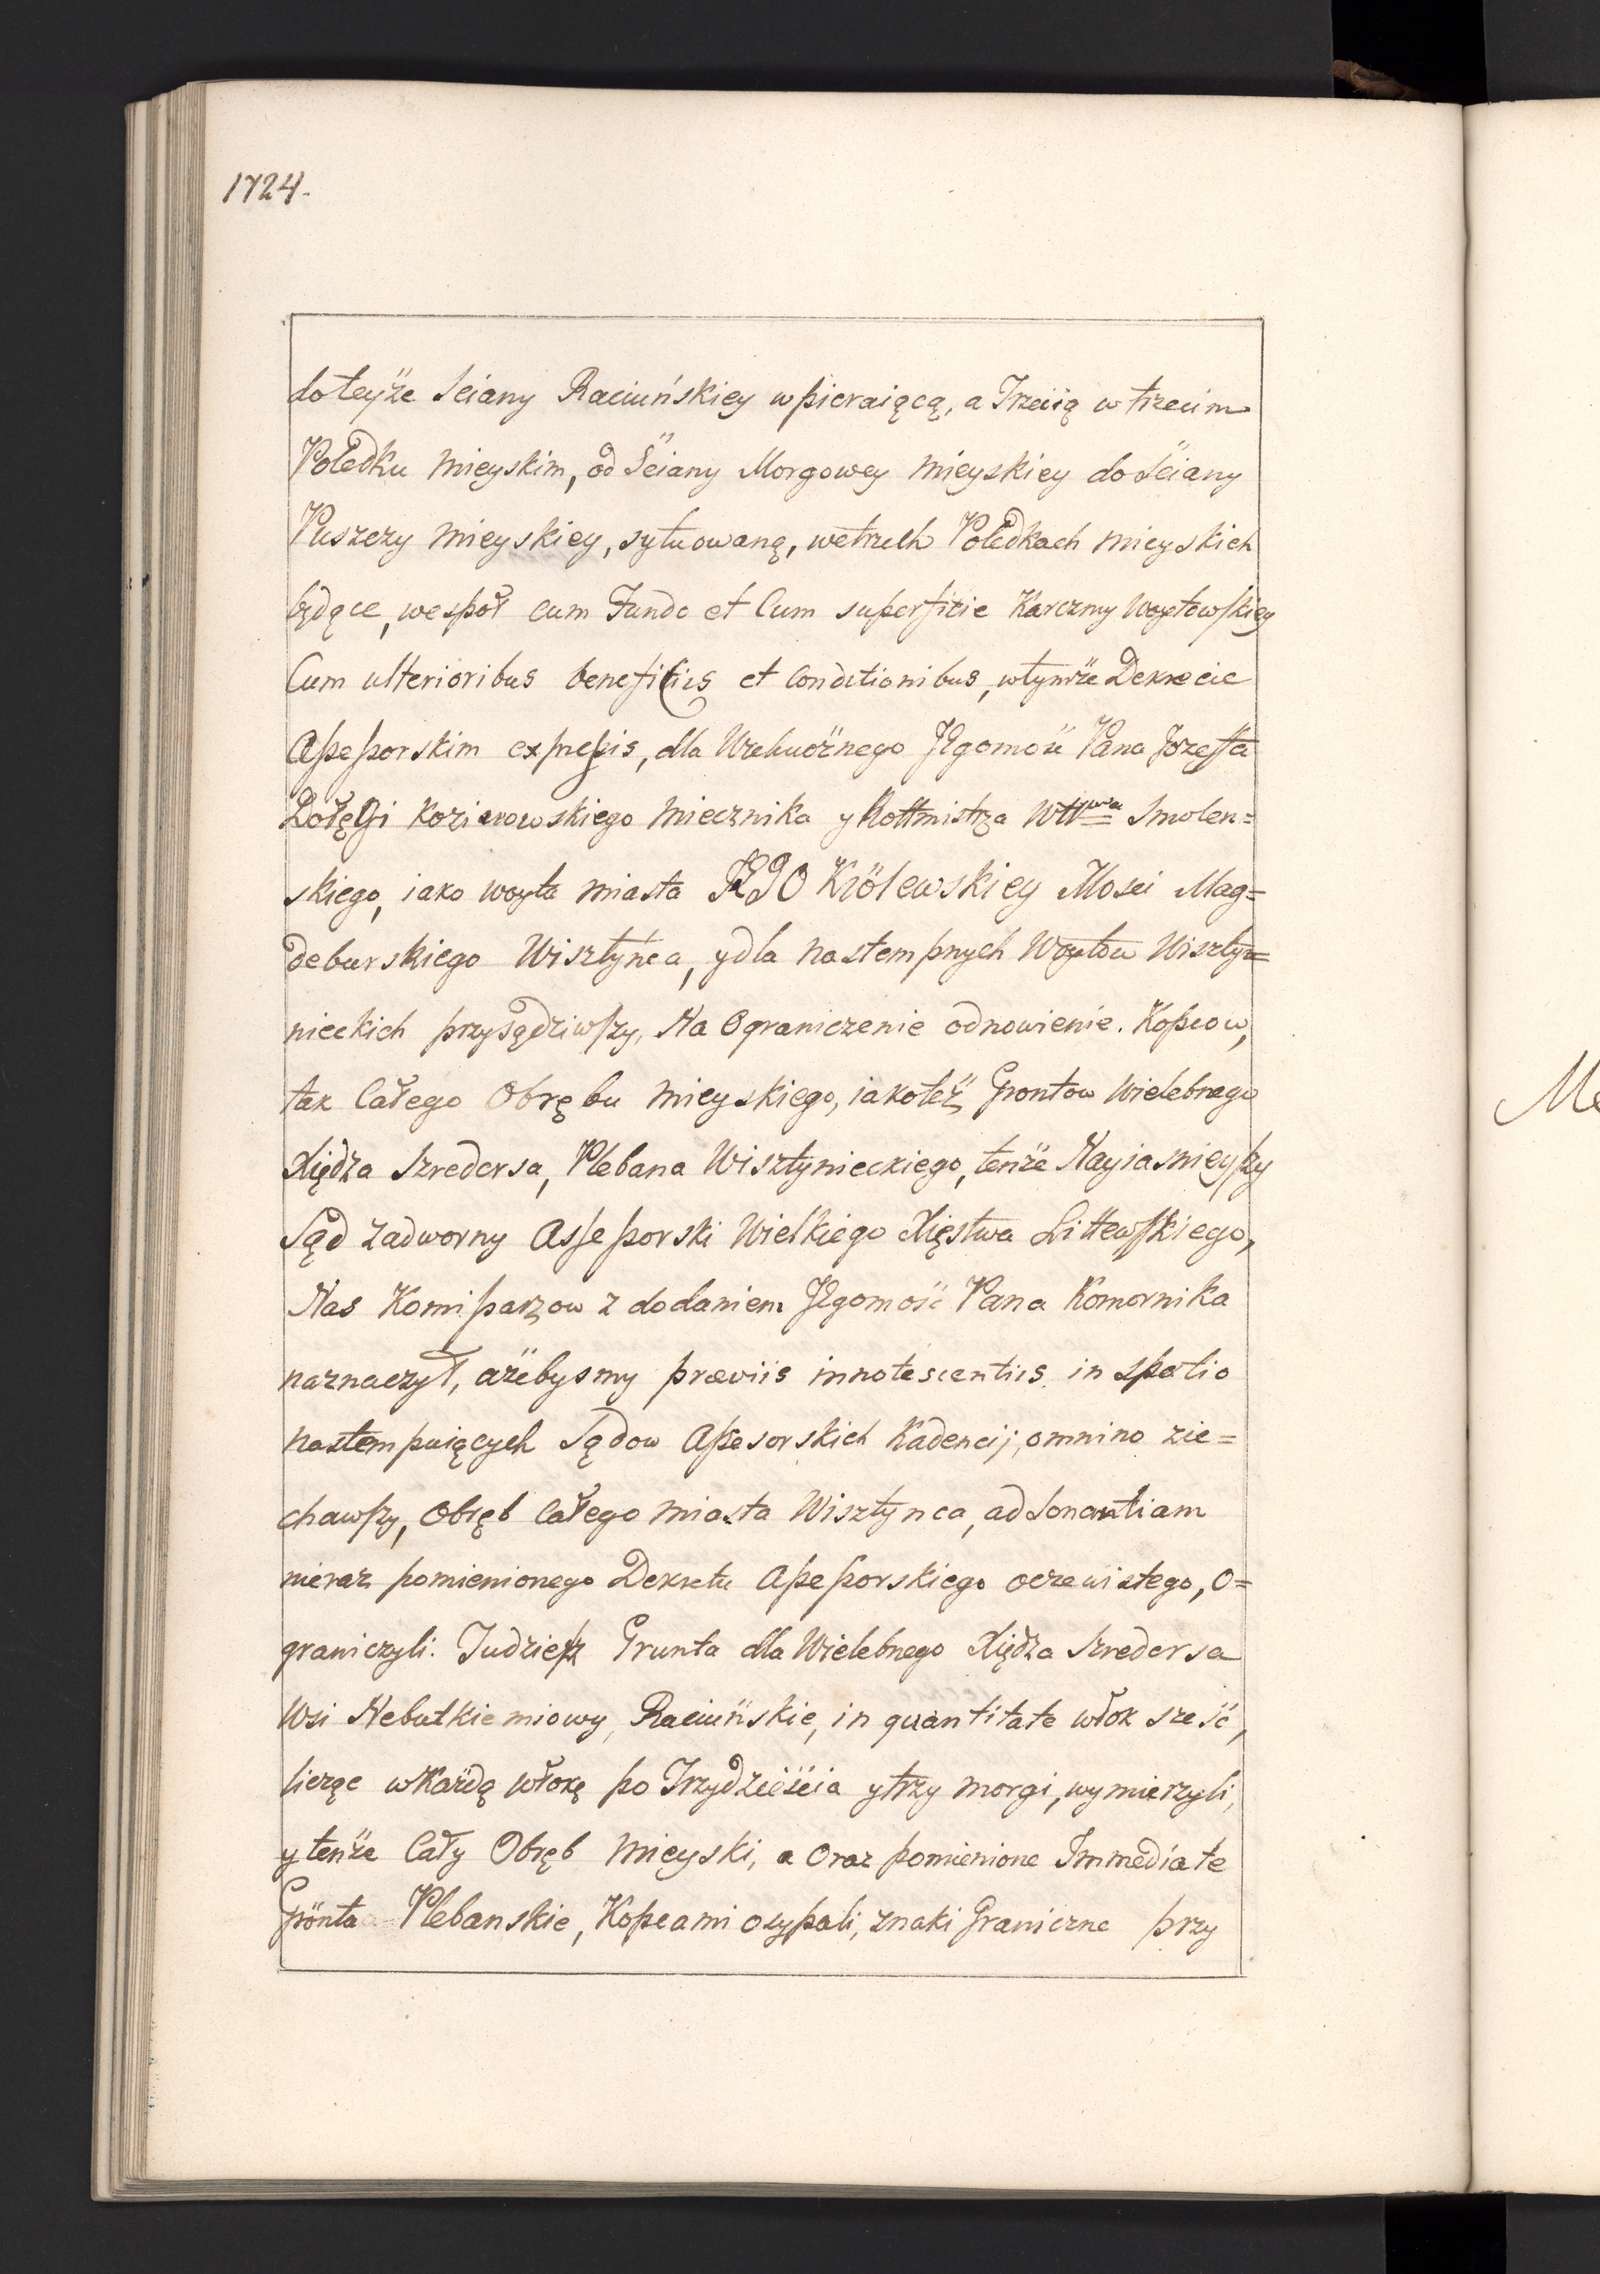 1724.
doteyże Sciany Raciuńskiey wpieraiącą, a Trzecią w trzecim
Poledku Mieyskim, od Ściany Morgowey Mieyskiey do Ściany
Puszczy Mieyskiey, sytuowaną, wetrzech Poledkach Mieyskich
będące, wespoł cum Fundo et Cum superficie Karczmy Woytowskiey
Cum ulterioribus beneficiis et Conditionibus, wtymże Dekrecie
Assessorskim expressis, dla Wielmożnego Jegomość Pana Jozeffa
Dołęgi Kozierowskiego Miecznika y Rottmistrza Wttwa Smolen=
skiego, iako Woyta Miasta JEGO Królewskiey Mosci Mag=
deburskiego Wisztyńca, y dla Nastempnych Woytow Wisztyn=
nieckich przysądziwszy, Na Ograniczenie odnowienie. Kopcow,
tak Całego Obrębu Mieyskiego, iakoteż Grontow Wielebnego
Xiędza Szredersa, Plebana Wisztynieckiego, tenże Nayiasnieyszy
Sąd Zadworny Assessorski Wielkiego Xięstwa Littewskiego,
Nas Komissarzow z dodaniem Jegomość Pana Komornika
naznaczył, ażebysmy præviis innotescentiis in spatio
Nastempuiących Sądow Assesorskich Kadencij, omnino zie=
chawszy, Obręb Całego Miasta Wisztynca, ad Sonantiam
nieraz pomienionego Dekretu Assessorskiego oczewistego, O=
graniczyli: Tudziesz Grunta dla Wielebnego Xiędza Szredersa
Wsi Nebutkiemiowy, Raciuńskie, in quantitate włok sześć,
licząc w Każdą włokę po Trzydzieścia y trzy morgi, wymierzyli,
y tenże Cały Obręb Mieyski, a Oraz pomienione Immediate
Grónta Plebanskie, Kopcami osypali, znaki Graniczne przy